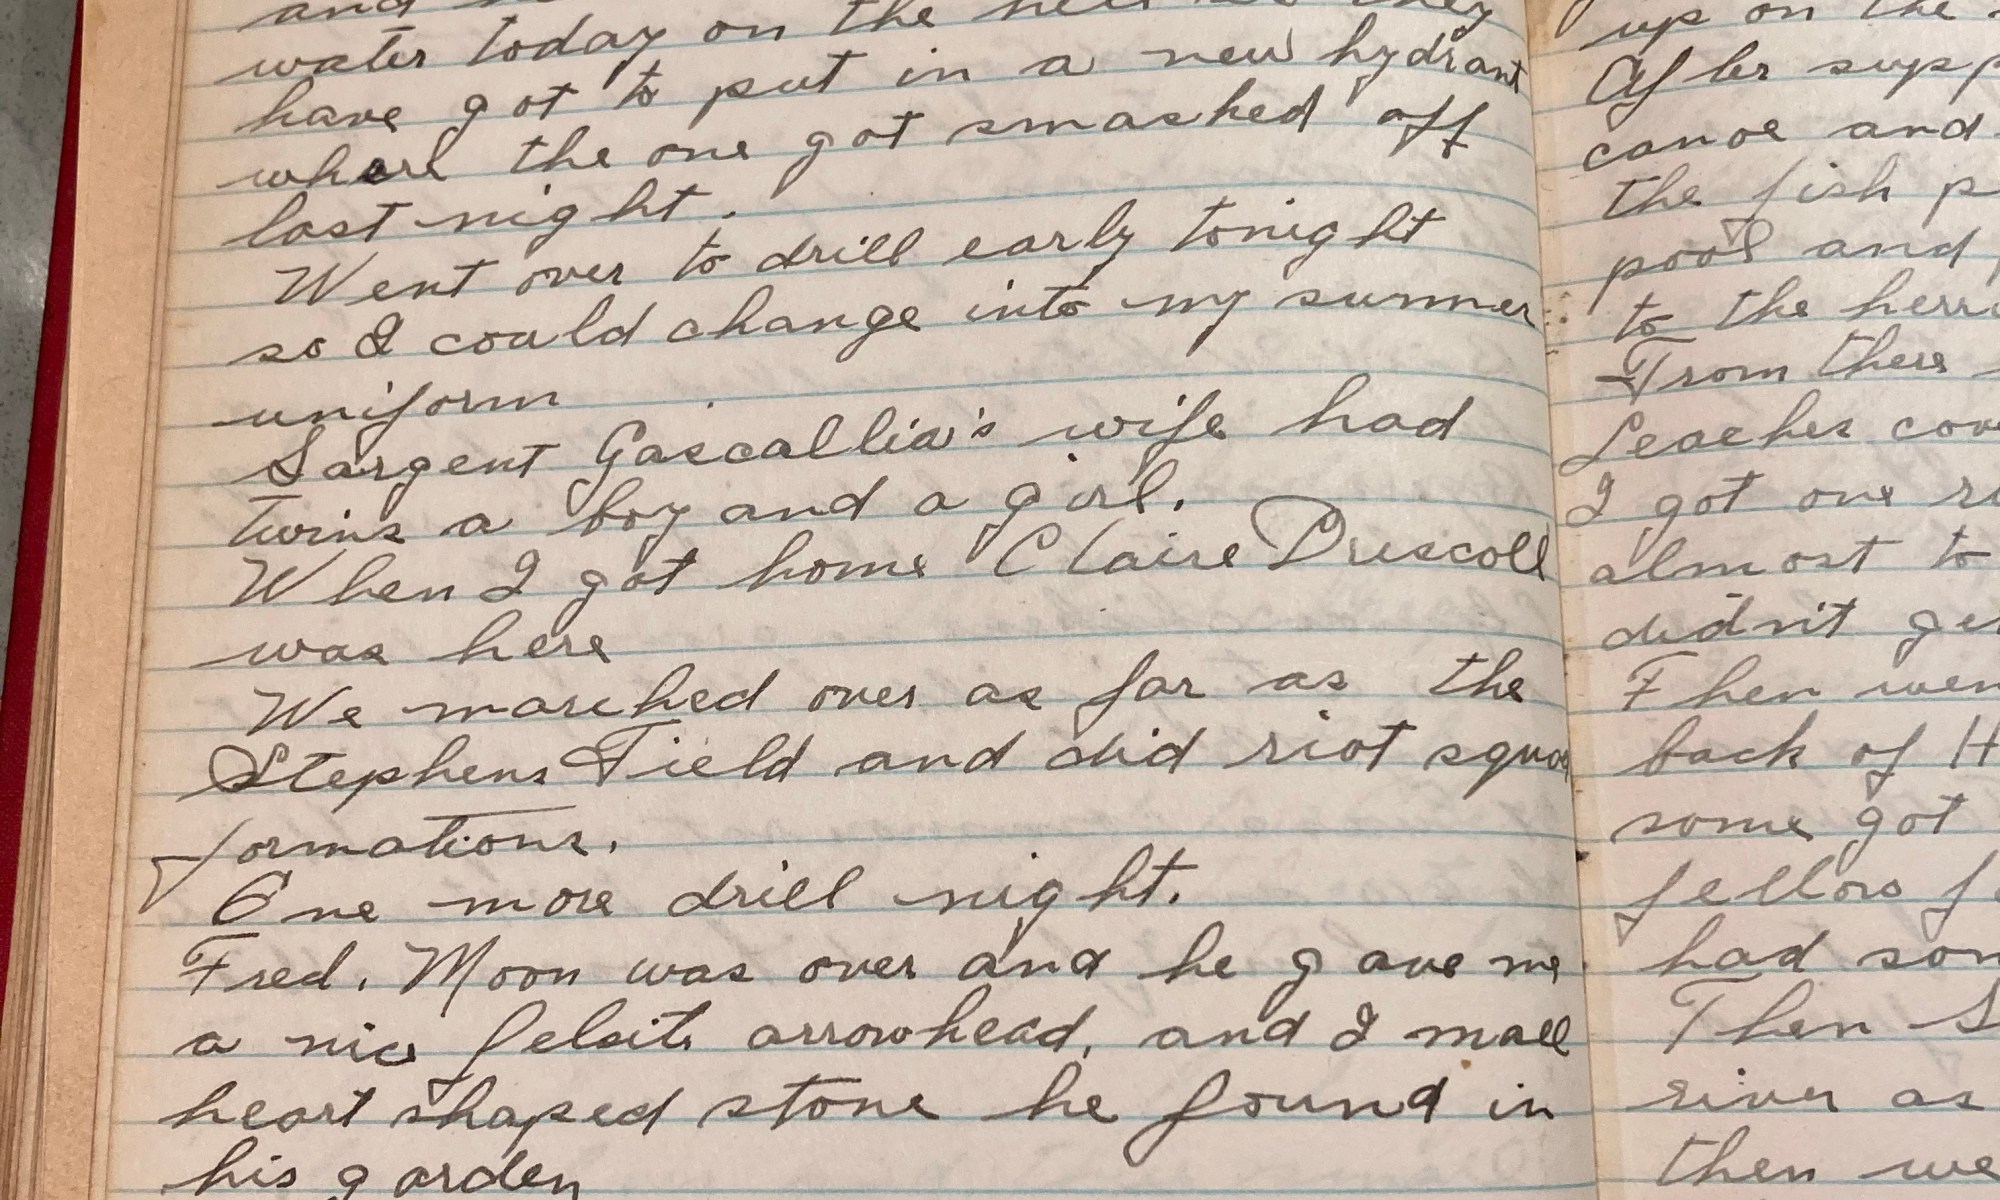 and
water today on the they
have got to put in a new hydrant
where the one got smashed off
last night.
Went over to drill early tonight
so I could change into my summer
uniform
Sargent Gascallia's wife had
twins a boy and a girl.
When I got home Claire Driscoll
was here
We marched over as far as the
Stephens Field and did riot squad
formations.
One more drill night.
Fred. Moon was over and he gave me
a nice felsite arrowhead, and I mall
heart shaped stone he found in
his garden
up on the
After supp
canoe and
the fish p
pool and
to the herri
From there
Leaches cov
I got one
almost to
didn't ge
Then wen
back of H
some got
fellow f
had som
Then S
river as
then we